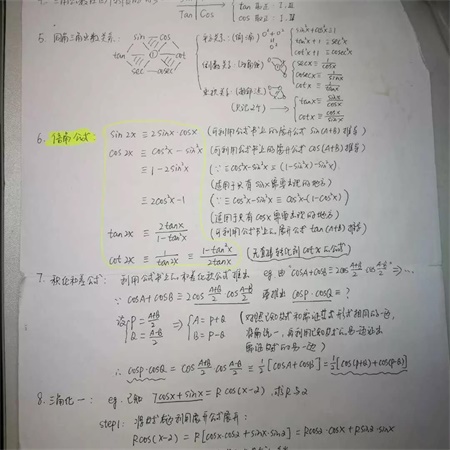 Tan | Cos
cos 取正：I.Ⅳ
5. 同角三角函数关系：
sin cos
tan cot
sec cosec
平方关系：
sin²x+cos²x≡1
tan²x+1≡sec²x
cot²x+1≡cosec²x
倒数关系：
secx≡1/cosx
cosecx≡1/sinx
cotx≡1/tanx
tanx≡sinx/cosx
cotx≡cosx/sinx
6. 倍角公式：
sin2x≡2sinx·cosx (可利用公式书上的展开公式 sin(A+B) 推导)
cos2x≡cos²x-sin²x (可利用公式书上的展开公式 cos(A+B) 推导)
≡1-2sin²x (∵≡cos²x-sin²x≡(1-sin²x)-sin²x)
(适用于只有 sinx 要出现的地方)
≡2cos²x-1 (∵≡cos²x-sin²x≡cos²x-(1-cos²x))
(适用于只有 cosx 要出现的地方)
tan2x≡2tanx/1-tan²x (可利用公式书上展开公式 tan(A+B) 推导)
cot2x≡1/tan2x≡1-tan²x/2tanx (无直接转化到 cotx 的公式)
7. 积化和差公式：利用公式书上的和差化积公式推出 eg. 由 "cosA+cosB≡2cos A+B/2 cos A-B/2" ⇒...
∵ cosA+cosB≡2cos A+B/2 cos A-B/2 要推出 cosP·cosQ=？
设 P=A+B/2 Q=A-B/2 ⇒ A=P+Q B=P-Q
∴ cosP·cosQ=cos A+B/2 cos A-B/2≡1/2[cosA+cosB]=1/2[cos(P+Q)+cos(P-Q)]
8. 三角化一：eg. 已知 7cosx+sinx=Rcos(x-2),求R与2
step1: 将
利用展开公式展开：
Rcos(x-2)=R[cosx·cos2+sinx·sin2]=Rcos2·cosx+Rsin2·sinx